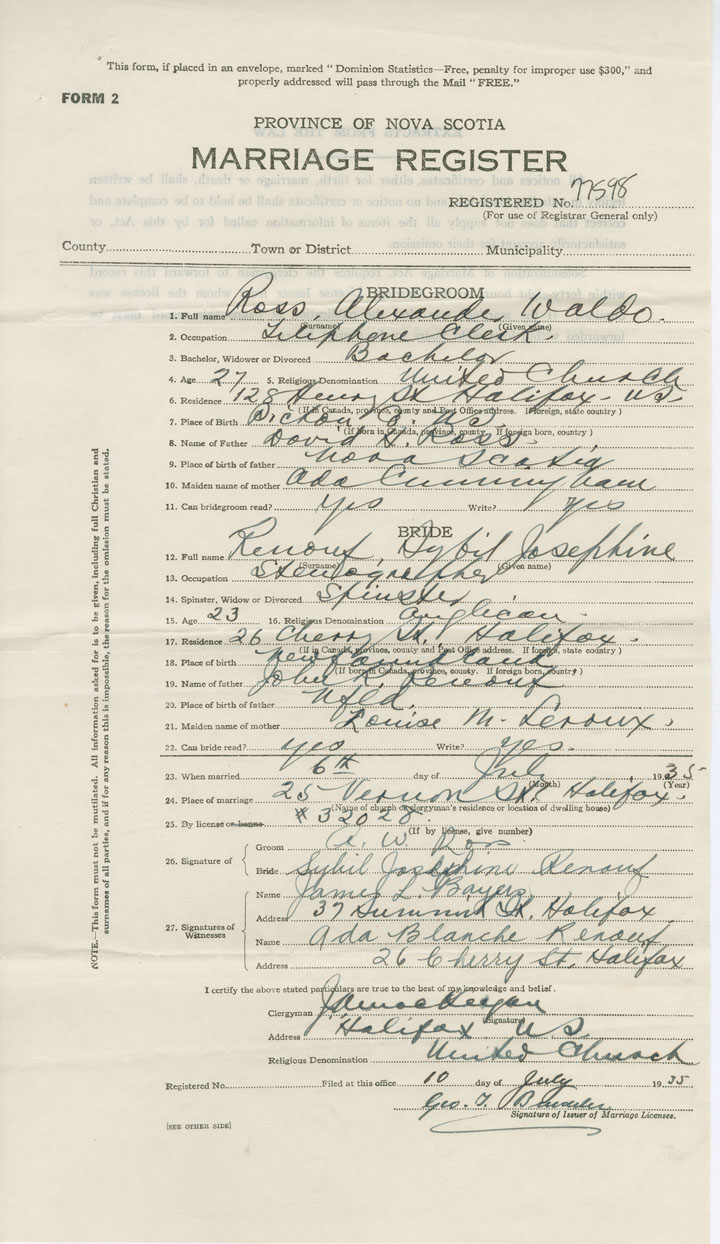 This form, if placed in an envelope, marked "Dominion Statistics—Free, penalty for improper use $300," and
properly addressed will pass through the Mail "FREE."
FORM 2
PROVINCE OF NOVA SCOTIA
MARRIAGE REGISTER
REGISTERED No. 77598
(For use of Registrar General only)
County Town or District Municipality
BRIDEGROOM
1. Full name Ross, Alexander Waldo.
(Surname) (Given name)
2. Occupation Telephone Clerk.
3. Bachelor, Widower or Divorced Bachelor
4. Age 27 5. Religious Denomination United Church
6. Residence 128 Henry St Halifax - N.S.
(If in Canada, province, county and Post Office address. If foreign, state country)
7. Place of Birth Pictou Co. N.S.
(If born in Canada, province, county. If foreign born, country)
8. Name of Father David H. Ross.
9. Place of birth of father Nova Scotia
10. Maiden name of mother Ada Cunningham
11. Can bridegroom read? Yes Write? Yes
BRIDE
12. Full name Renouf, Sybil Josephine
(Surname) (Given name)
13. Occupation Stenographer
14. Spinster, Widow or Divorced Spinster
15. Age 23 16. Religious Denomination Anglican
17. Residence 26 Cherry St. Halifax.
(If in Canada, province, county and Post Office address. If foreign, state country)
18. Place of birth Newfoundland
(If born in Canada, province, county. If foreign born, country)
19. Name of father John Renouf
20. Place of birth of father Nfld.
21. Maiden name of mother Louise M. Leroux.
22. Can bride read? yes Write? yes.
23. When married 6th day of July 1935
(Month) (Year)
24. Place of marriage 25 Vernon St. Halifax.
(Name of church or clergyman's residence or location of dwelling house)
25. By license or banns # 32028
(If by license, give number)
26. Signature of
Groom A. W. Ross
Bride Sybil Josephine Renouf
27. Signatures of Witnesses
Name James L. Bayers
Address 37 Summit St, Halifax
Name Ada Blanche Renouf
Address 26 Cherry St. Halifax
I certify the above stated particulars are true to the best of my knowledge and belief.
Clergyman
(Signature)
Address Halifax N.S.
Religious Denomination United Church
Registered No. Filed at this office 10 day of July 1935
Geo. T.
Signature of Issuer of Marriage Licenses.
[SEE OTHER SIDE]
NOTE.—This form must not be mutilated. All information asked for is to be given, including full Christian and
surnames of all parties, and if for any reason this is impossible, the reason for the omission must be stated.